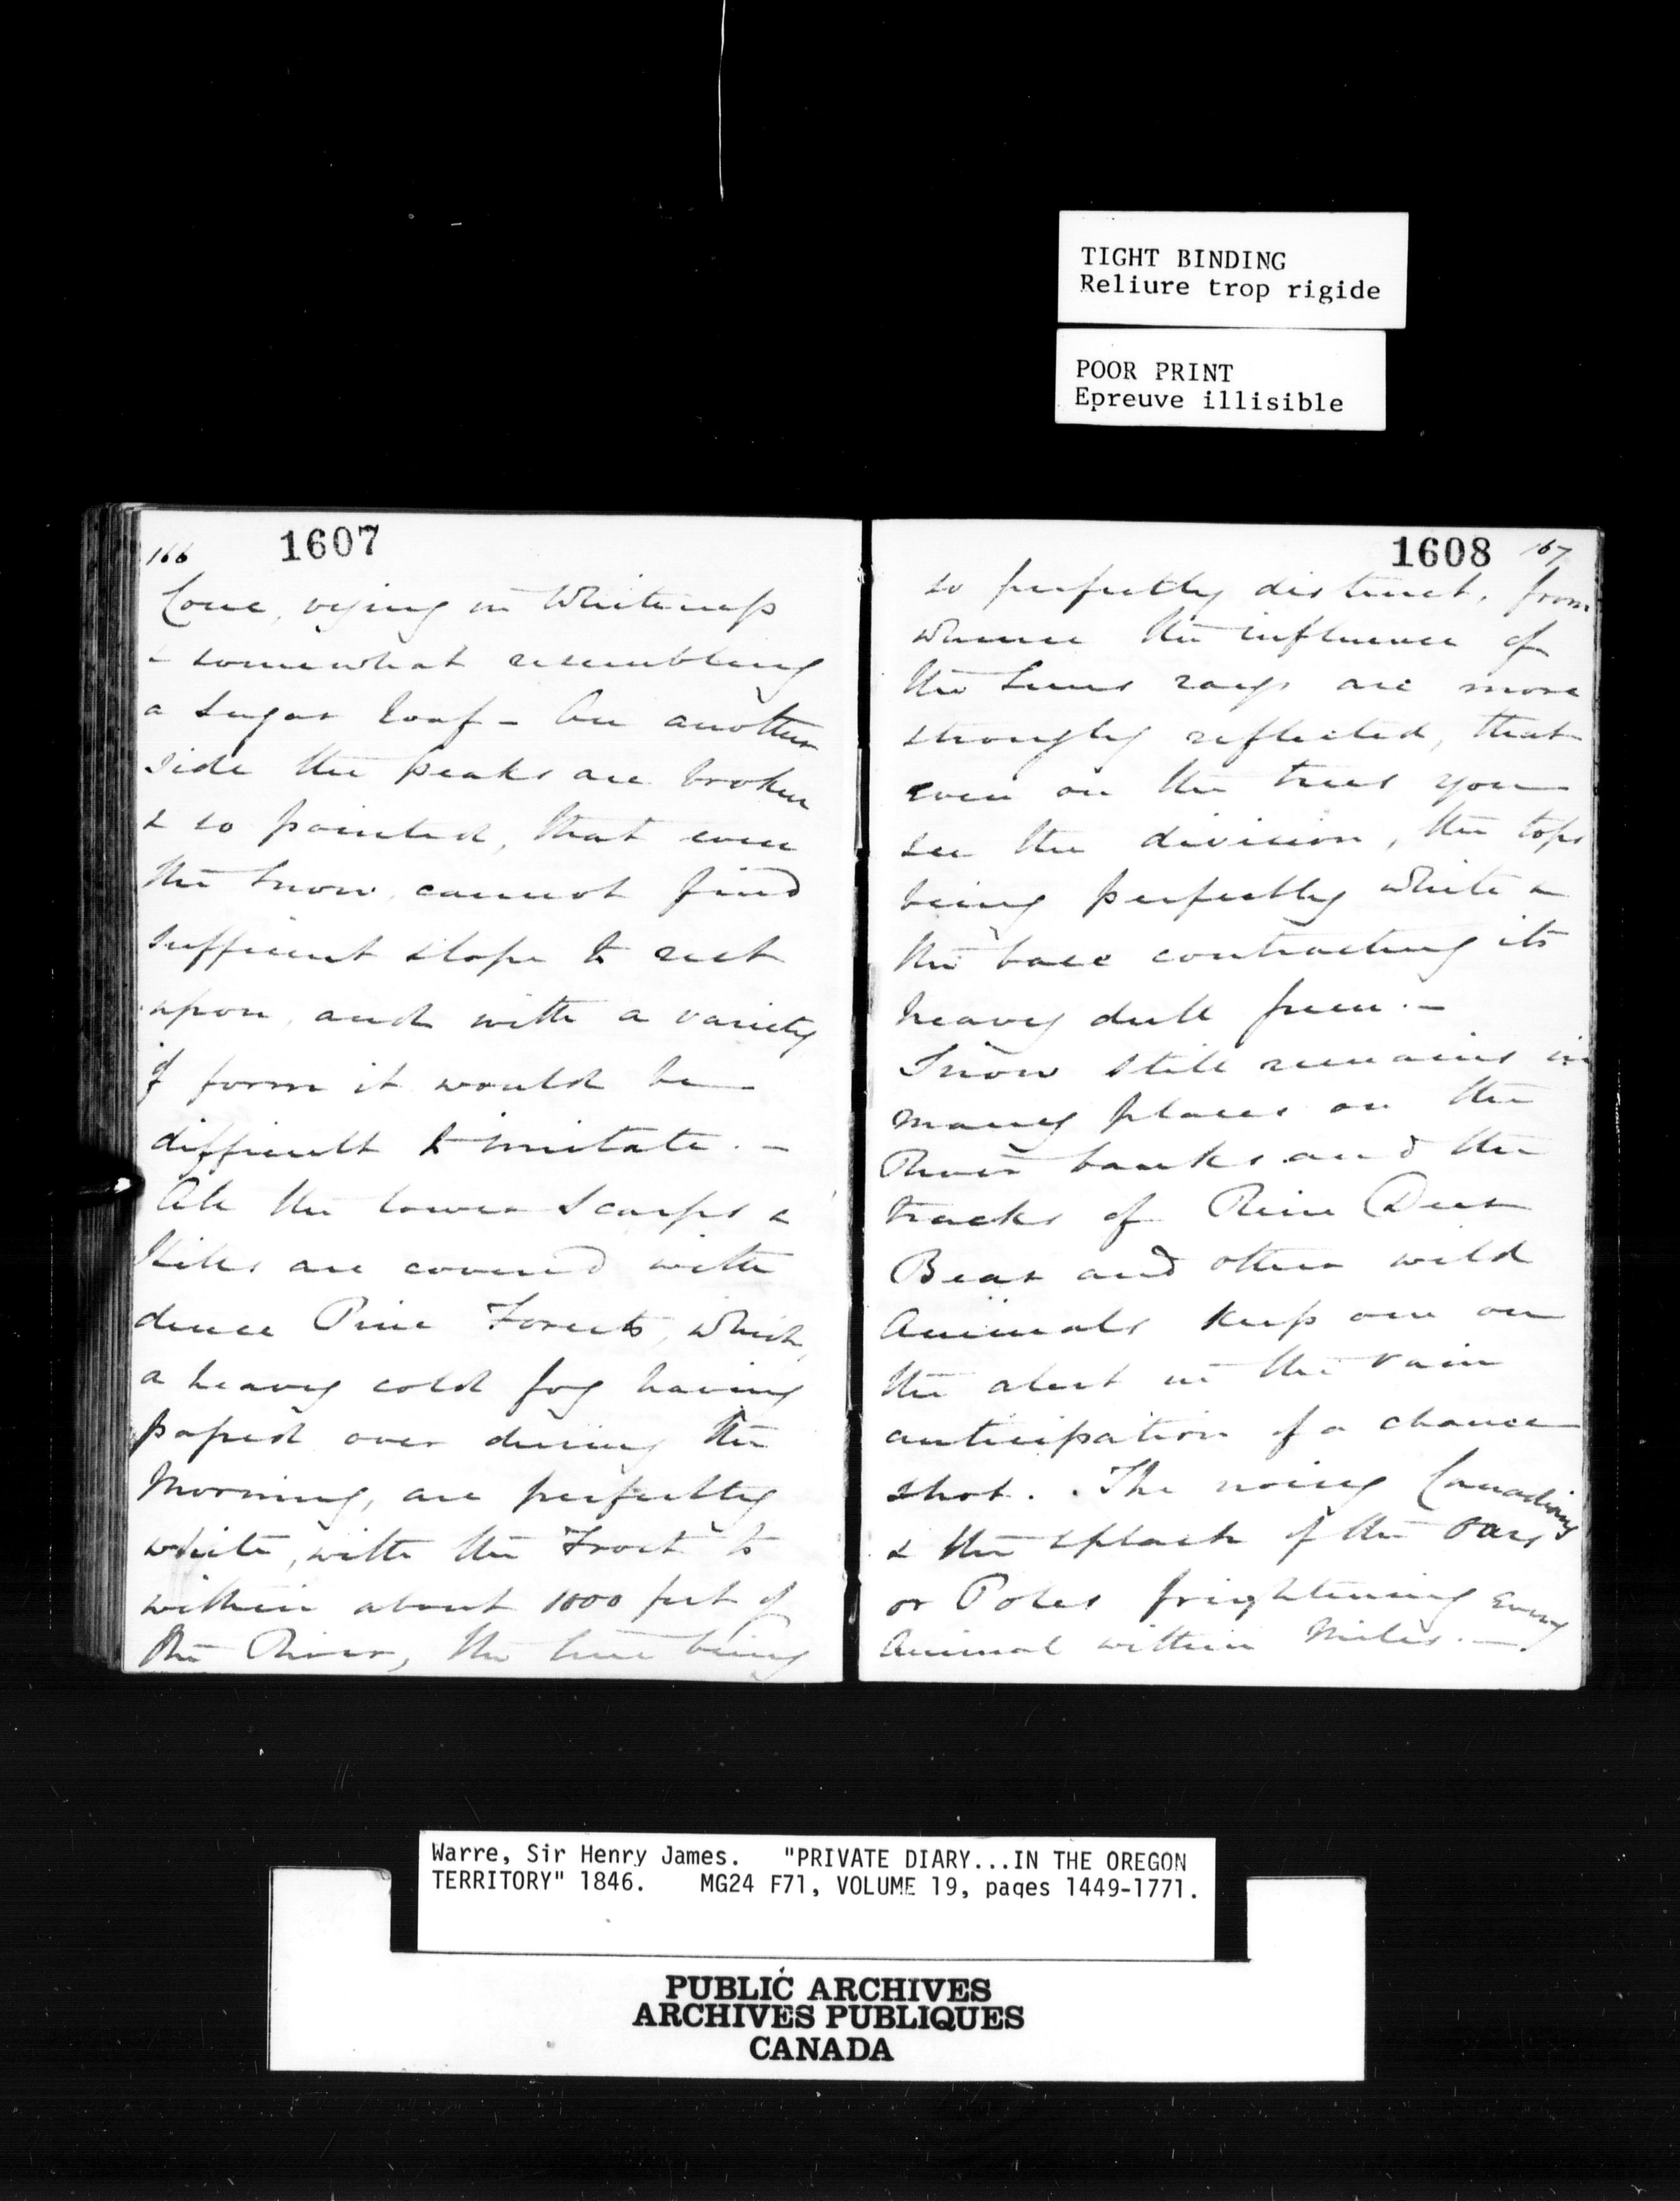 TIGHT BINDING
Reliure trop rigide
POOR PRINT
Epreuve illisible
166 1607
Cone, vying in Whiteness
& somewhat resembling
a Sugar loaf – On another
side the peaks are broken
& so pointed, that even
the Snow, cannot find
sufficient slope to rest
upon, and with a variety
of form it would be
difficult to imitate. –
All the lower Scarps &
Hills are covered with
dense Pine Forests, which,
a heavy cold fog having
passed over during the
Morning, are perfectly
white, with the Frost to
within about 1000 feet of
the River, the line being
1608 167
so perfectly distinct, from
whence the influence of
the Suns rays are more
strongly reflected, that
even on the trees you
see the division, the tops
being perfectly white &
the base contrasting its
heavy dull green. –
Snow still remains in
many places on the
River banks and the
tracks of Rein Deer
Bear and other wild
Animals keep one on
the alert in the vain
anticipation of a chance
shot. . The noisy Canadians
& the splash of the Oars
or Poles frightening every
Animal within Miles. –
Warre, Sir Henry James. "PRIVATE DIARY...IN THE OREGON
TERRITORY" 1846. MG24 F71, VOLUME 19, pages 1449-1771.
PUBLIC ARCHIVES
ARCHIVES PUBLIQUES
CANADA